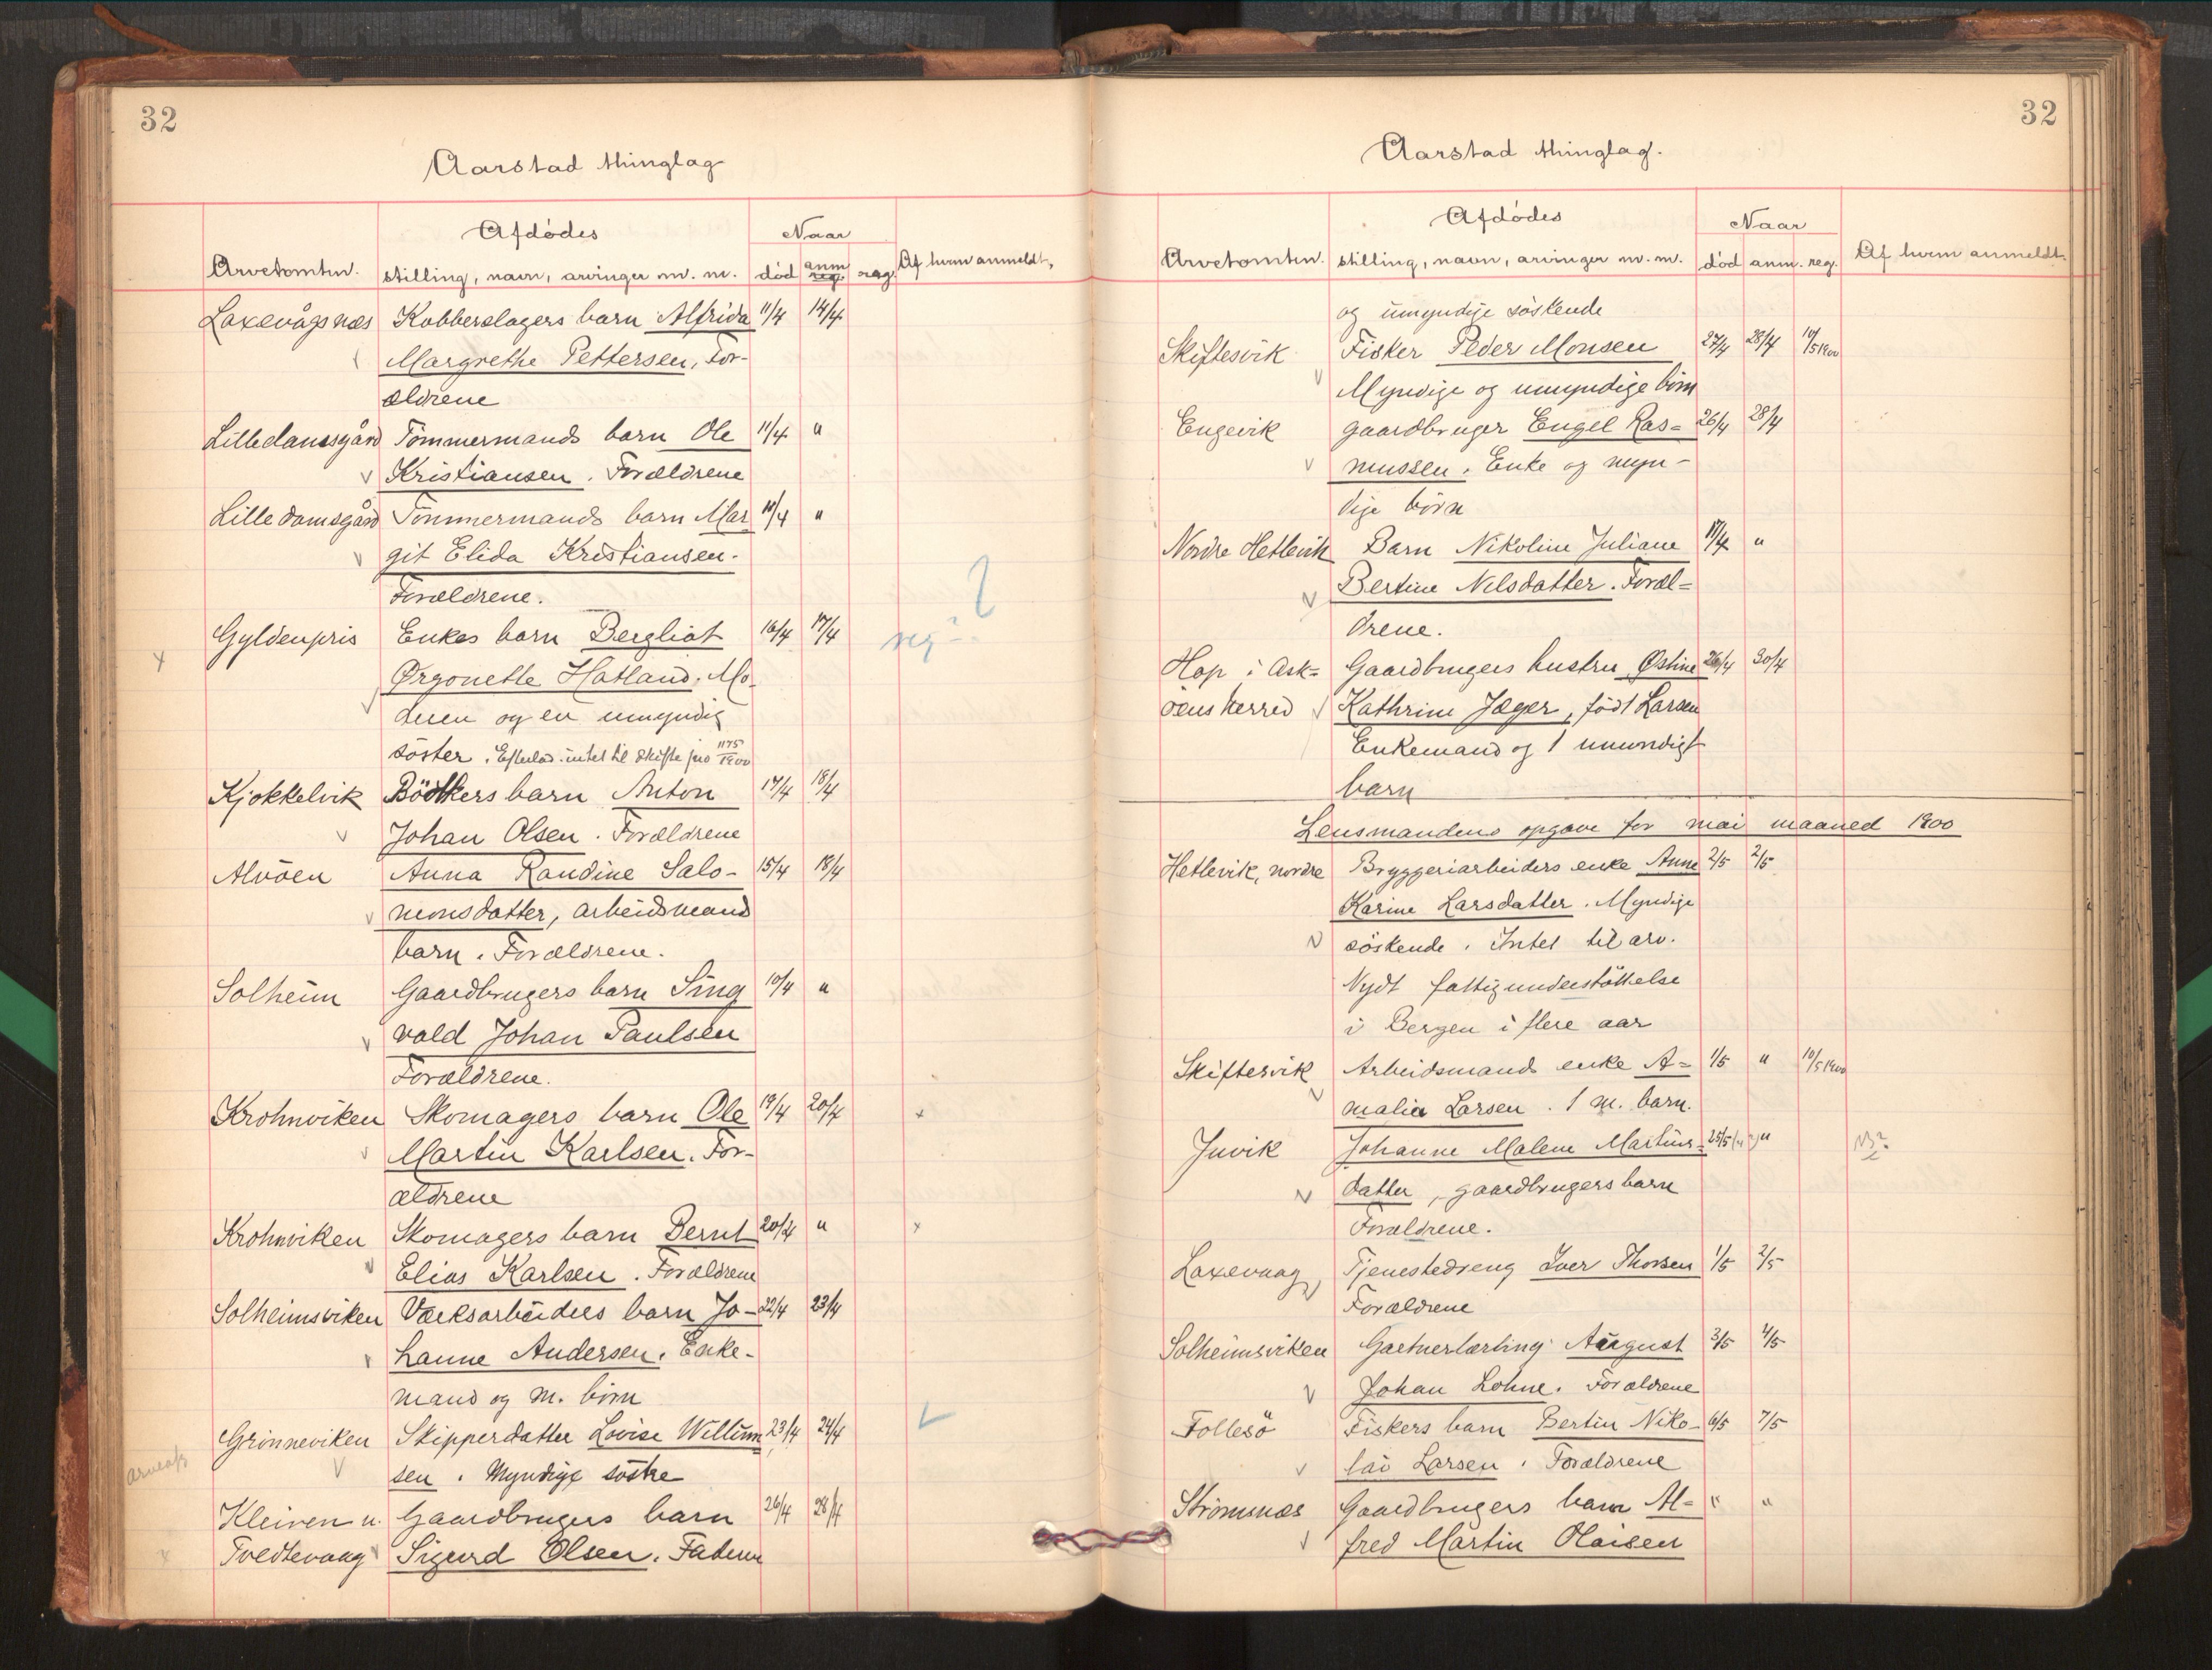 32
Aarstad thinglag
Afdødes
Naar
Arvetomten. stilling, navn, arvinger m. m. død anm reg. reg. Af hvem anmeldt,
Laxevågsnæs Kobberslagers barn Alfrida 11/4 14/4
Margrethe Pettersen, For-
ældrene
Lilledamsgård Tömmermands barn Ole 11/4 "
Kristiansen. Forældrene
Lilledamsgård Tömmermands barn Mar 11/4 "
git Elida Kristiansen.
Forældrene.
Gyldenpris Enkes barn Bergliot 16/4 17/4 reg?
Ørgonette Hatland. Mo-
deren og en umyndig
söster. Efterlod intet til skifte jno 1175/1900
Kjøkkelvik Bödkers barn Anton 17/4 18/4
Johan Olsen. Forældrene
Alvöen Anna Randine Salo- 15/4 18/4
monsdatter, arbeidsmand
barn. Forældrene.
Solheim Gaardbrugers barn Sing 10/4 "
vald Johan Paulsen
Forældrene.
Krohnviken Skomagers barn Ole 19/4 20/4 x
Martin Karlsen. For-
ældrene
Krohnviken Skomagers barn Bernt 20/4 " x
Elias Karlsen. Forældrene
Solheimsviken Værksarbeiders barn Jo- 22/4 23/4
hanne Andersen. Enke-
mand og m. börn
Grönneviken Skipperdatter Lovise Willum 23/4 24/4
sen. Myndige söstre
Kleiven u. Gaardbrugers barn 26/4 28/4
Tvedtevaag Sigurd Olsen. Faderen
32
Aarstad thinglag.
Afdødes
Naar
Arvetomten. stilling, navn, arvinger m. m. død anm. reg. Af hvem anmeldt.
og umyndige söskende
Skiftesvik Fisker Peder Monsen 27/4 28/4 10/5 1900
Myndige og umyndige börn
Engevik gaardbruger Engel Ras= 26/4 28/4
mussen. Enke og myn-
dige börn
Nordre Hetlevik Barn Nikoline Juliane 17/4 "
Bertine Nilsdatter. Foræl=
drene.
Hop i Ask= Gaardbrugers hustru Østine 26/4 30/4
öens herred Kathrine Jæger, født Larsen
Enkemand og 1 umyndigt
barn
Lensmandens opgave for mai maaned 1900
Hetlevik, nordre Bryggeriarbeiders enke Anne 2/5 2/5
Karine Larsdatter. Myndige
söskende. Intet til arv.
Nydt fattigunderstöttelse
i Bergen i flere aar
Skiftesvik Arbeidsmands enke A= 1/5 " 10/5 1900
malia Larsen. 1 m. barn.
Juvik Johanne Malene Martins= 25/5 (4?) " NB?
datter, gaardbrugers barn
Forældrene.
Laxevaag, Tjenestedreng Iver Thorsen 1/5 2/5
Forældrene
Solheimsviken Gartnerlærling August 3/5 4/5
Johan Lohne. Forældrene
Follesö Fiskers barn Bertin Niko- 6/5 7/5
lai Larsen. Forældrene
Strömsnæs Gaardbrugers barn Al= " "
fred Martin Olaisen